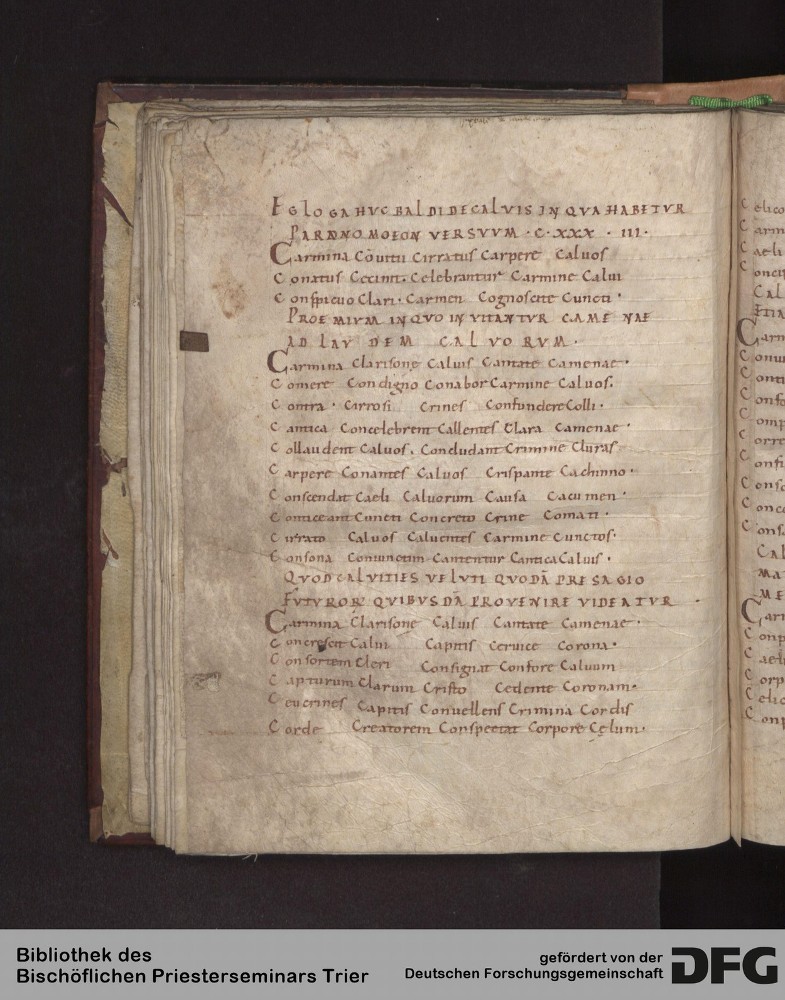 EGLOGA HUCBALDI DE CALVIS IN QVA HABETVR
PARONOMOEON VERSVVM · C · XXX · III ·
Carmina Cōuitii Cirratus Carpere Calvos
Conatus Cecinit. Celebrantur Carmine Calui
Conspicuo Clari. Carmen Cognoscite Cuncti.
PROEMIVM IN QVO INVITANTVR CAMENAE
AD LAVDEM CALVORVM.
Carmina Clarisone Caluis Cantate Camenae.
Comere Condigno Conabor Carmine Caluos.
Contra. Cirrosi Crines Confundere Colli.
Cantica Concelebrent Callentes Clara Camenae.
Collaudent Caluos. Concludant Crimine Cluras
Carpere Conantes Caluos Crispante Cachinno.
Conscendat Caeli Caluorum Causa Cacumen.
Conticeant Cuncti Concreto Crine Comati.
Cirrato Caluos Caluentes Carmine Cunctos.
Consona Coniunctim Cantentur Cantica Caluis.
QVOD CALVITIES VELVTI QVODĀ PRESAGIO
FVTVROR QVIBVSDĀ PROVENIRE VIDEATVR.
Carmina Clarisone Caluis Cantate Camenae.
Concrescit Calui Capitis Ceruice Corona.
Consortem Cleri Consignat Confore Caluum
Capturum Clarum Cristo Cedente Coronam.
Ceu crines Capitis Conuellens Crimina Cordis
Corde Creatorem Conspectat Corpore Cęlum.
Carm
Caeli
Bibliothek des
Bischöflichen Priesterseminars Trier
gefördert von der
Deutschen Forschungsgemeinschaft
DFG